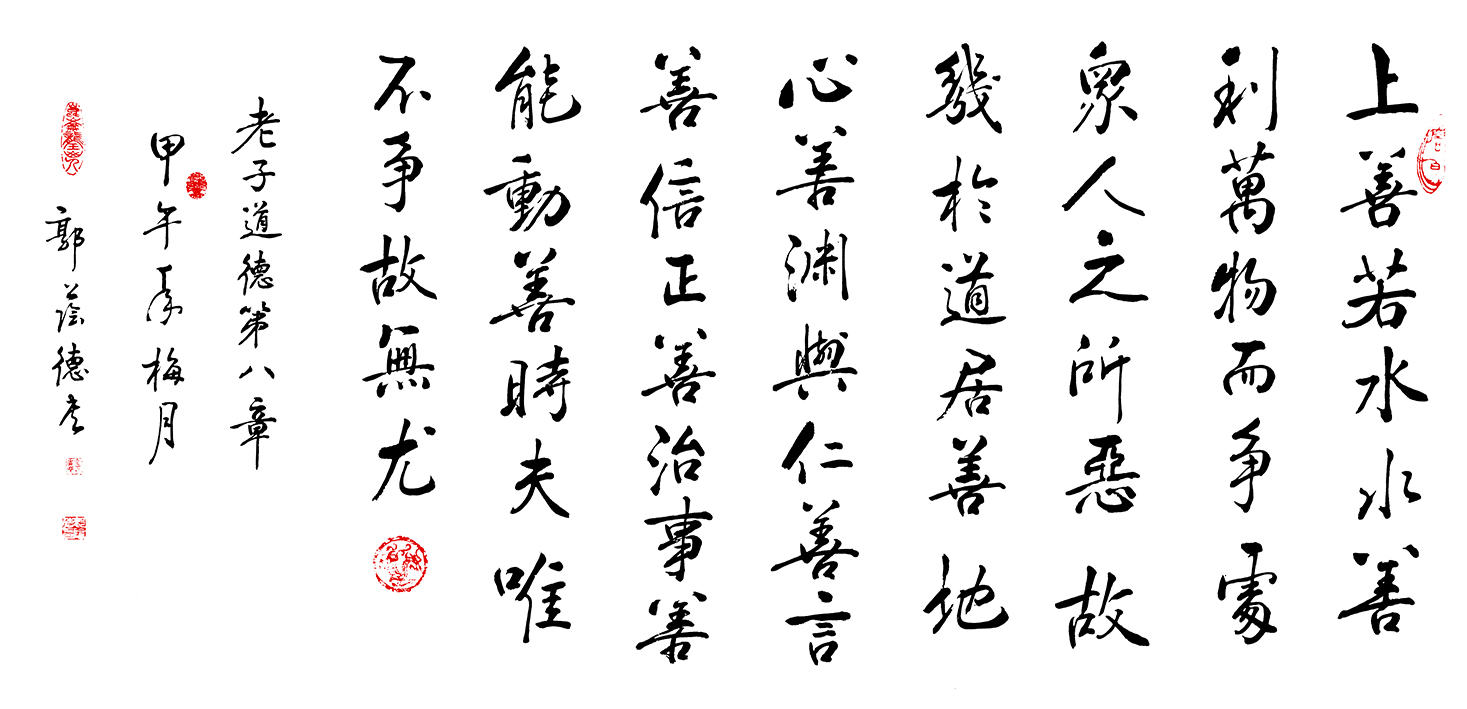 上善若水水善
利萬物而争處
衆人之所惡故
幾於道居善地
心善渊與仁善言
善信正善治事善
能動善時夫唯
不争故無尤
老子道德第八章
甲午梅月
郭蔭德